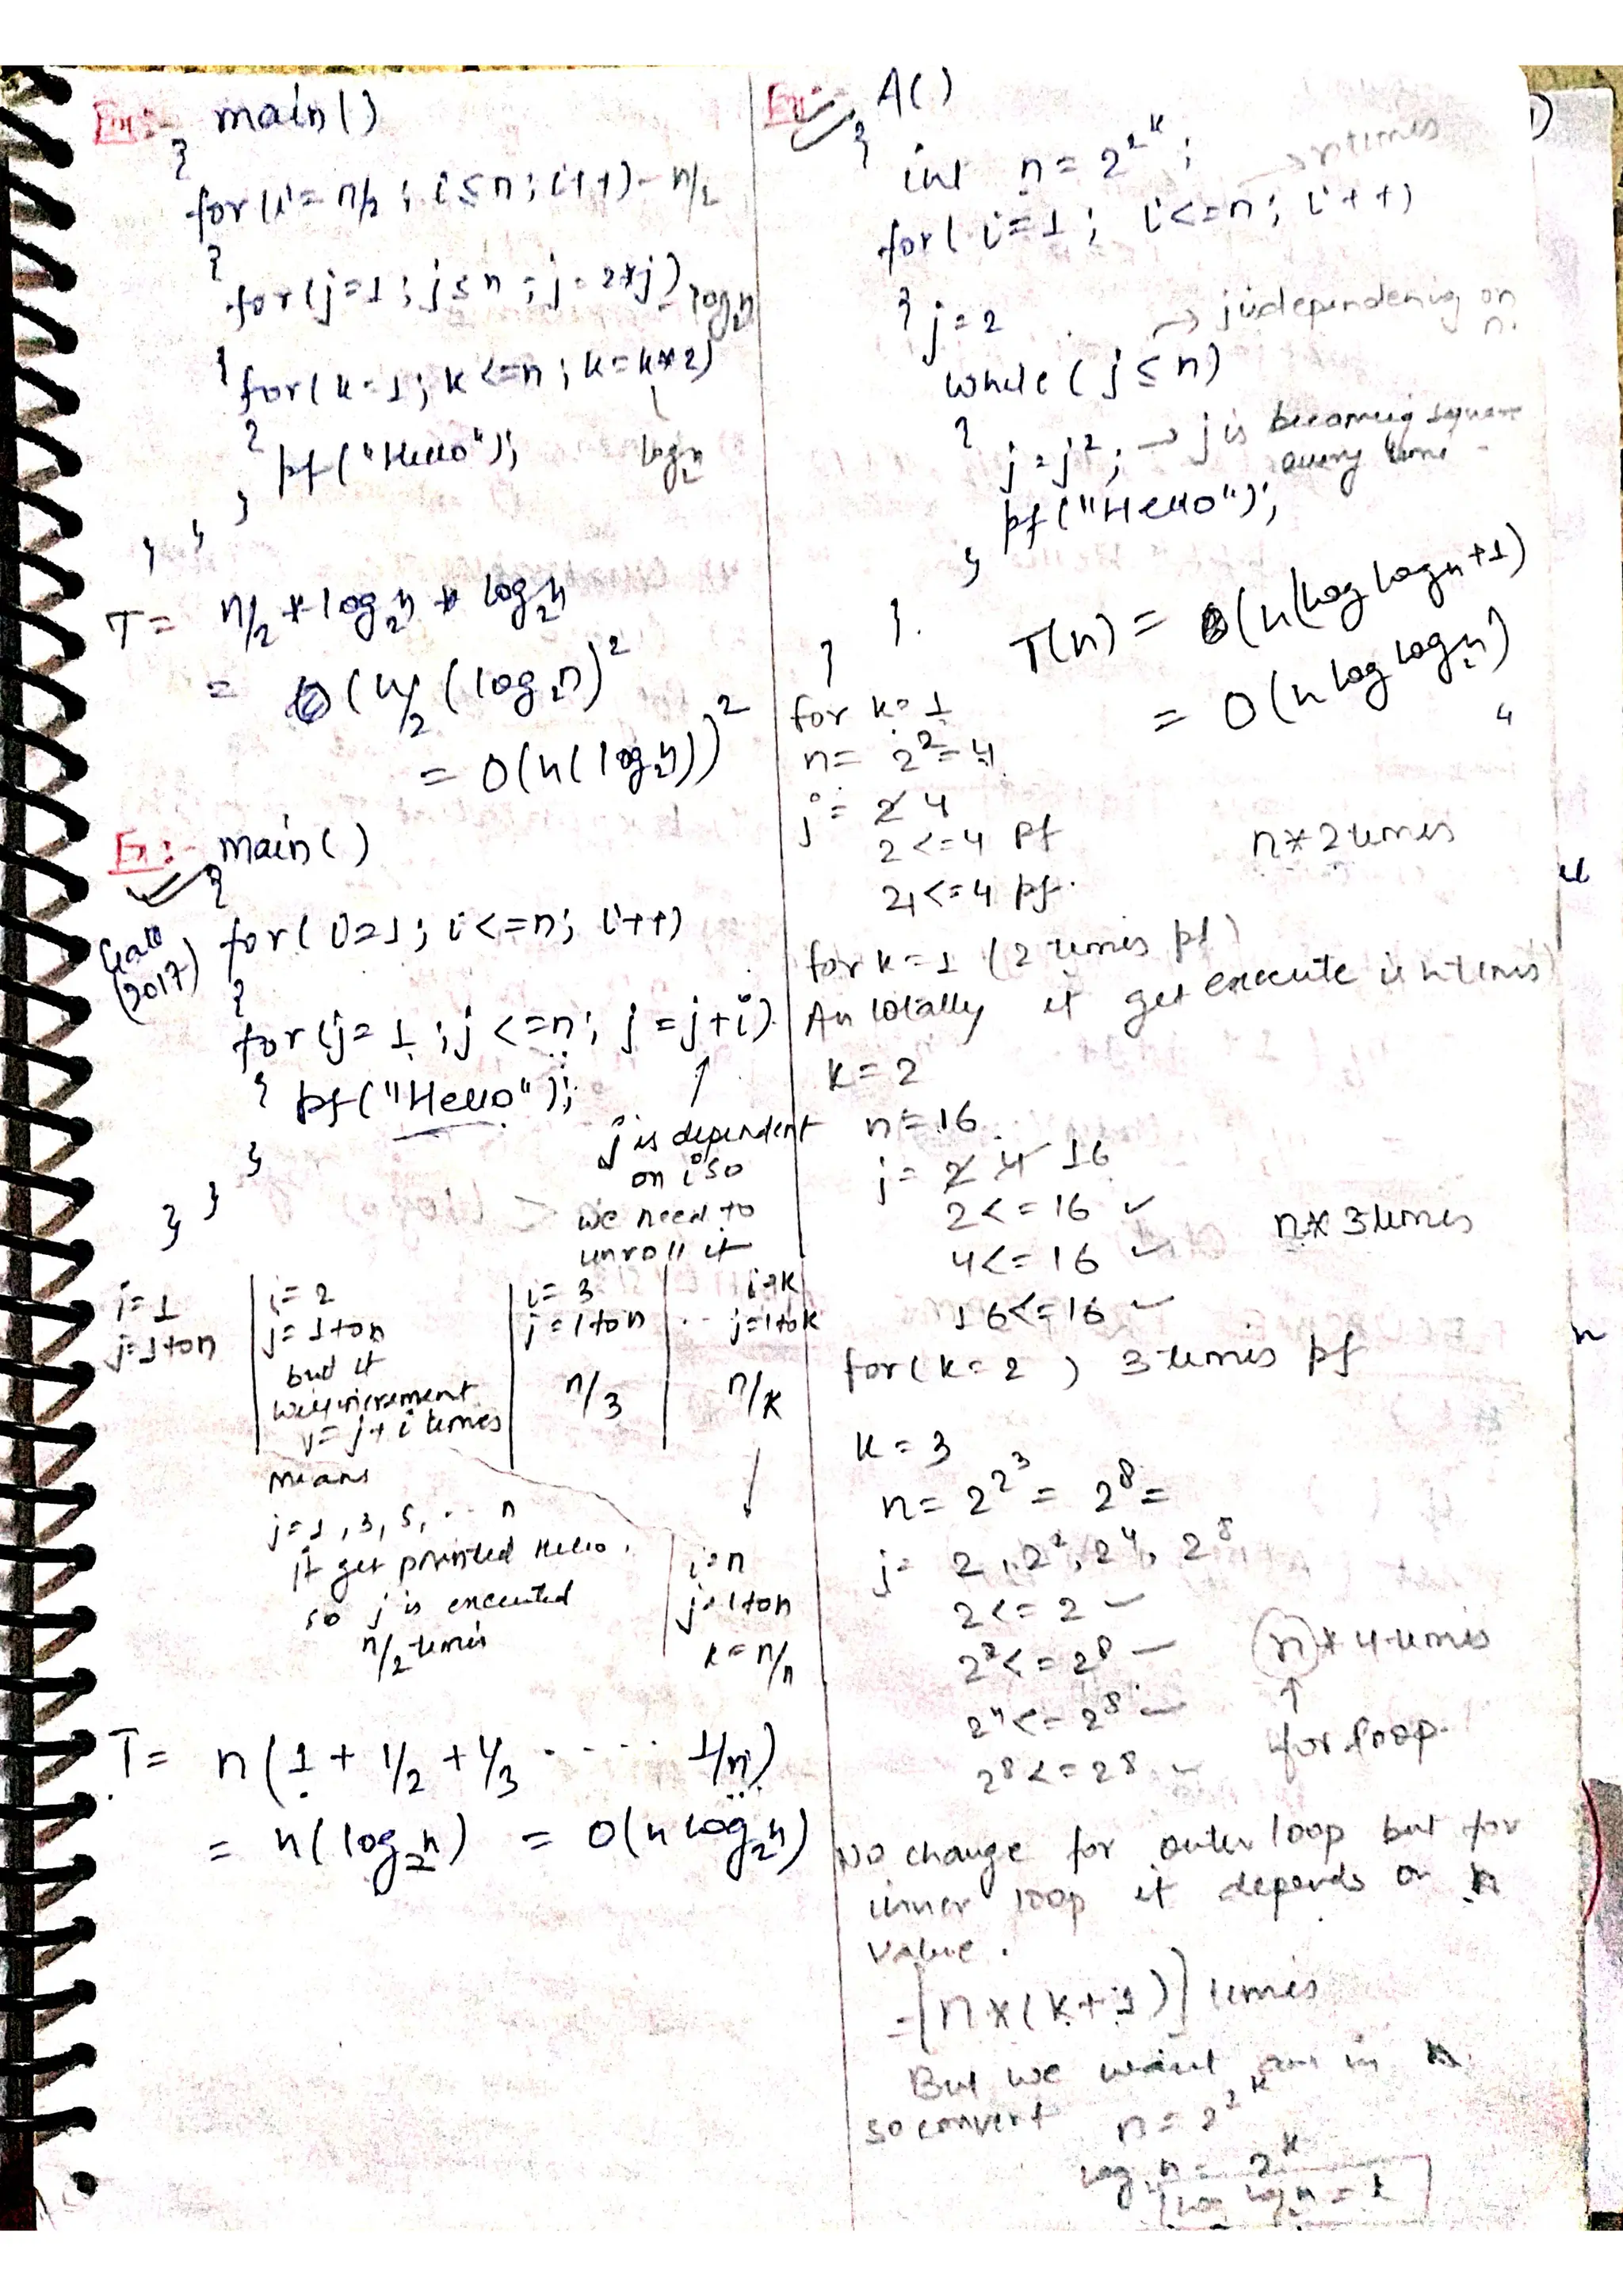 Ex:- main()
{
for(i = n/2 ; i ≤ n ; i++) - n/2
{
for(j=1 ; j ≤ n ; j = 2*j) log₂n
{ for(k=1; k <=n ; k = k*2)
{ pf("Hello"); log₂n
}
} }
T = n/2 * log₂n * log₂n
= O(n/2 (log₂n)²
= O(n(log₂n))²
Ex:- main()
{
Gate (2017)
for( i=1; i<=n; i++)
{
for(j=1 ; j<=n; j=j+i)
{ pf("Hello");
}
} }
↑
j is dependent
on i so
we need to
unroll it
i=1
j=1 to n
i=2
j=1 to n
but it
will increment
j= j+i times
means
j=1, 3, 5, ... n
it get printed Hello,
so j is executed
n/2 times
i=3
j=1 to n
n/3
.. i=k
j=1 to k
n/k
↓
i=n
j=1 to n
k = n/n
T = n(1 + 1/2 + 1/3 ..... 1/n)
= n(log₂n) = O(n log₂n)
Ex:- A()
{
int n = 2^2^k ;
→ n times
for( i=1 ; i<=n; i++)
{ j=2 → j is depending on
n.
while( j ≤ n)
{ j = j² ; → j is becoming square
every time
pf("Hello");
}
} }.
T(n) = O(n(log log n+1)
= O(n log log₂n)
for k=1
n= 2²=4
j = 2 4
2<=4 pf
4<=4 pf.
n*2 times
for k=1 (2 times pf)
An totally it get execute is n times
k=2
n=16
j= 2 4 16
2<=16 ✓
4<=16 ✓
16<=16 ✓
n*3 times
for(k=2) 3 times pf
k=3
n= 2^2^3 = 2⁸ =
j= 2, 2², 2⁴, 2⁸
2<=2 ✓
2²<=2⁸ ✓
2⁴<=2⁸ ✓
2⁸<=2⁸ ✓
n*4 times
↑
for loop.
No change for outer loop but for
inner loop it depends on k
value.
=[n*(k+1)] times
But we want ans in n
so convert n=2^2^k
log₂n = 2^k
log log₂n = k